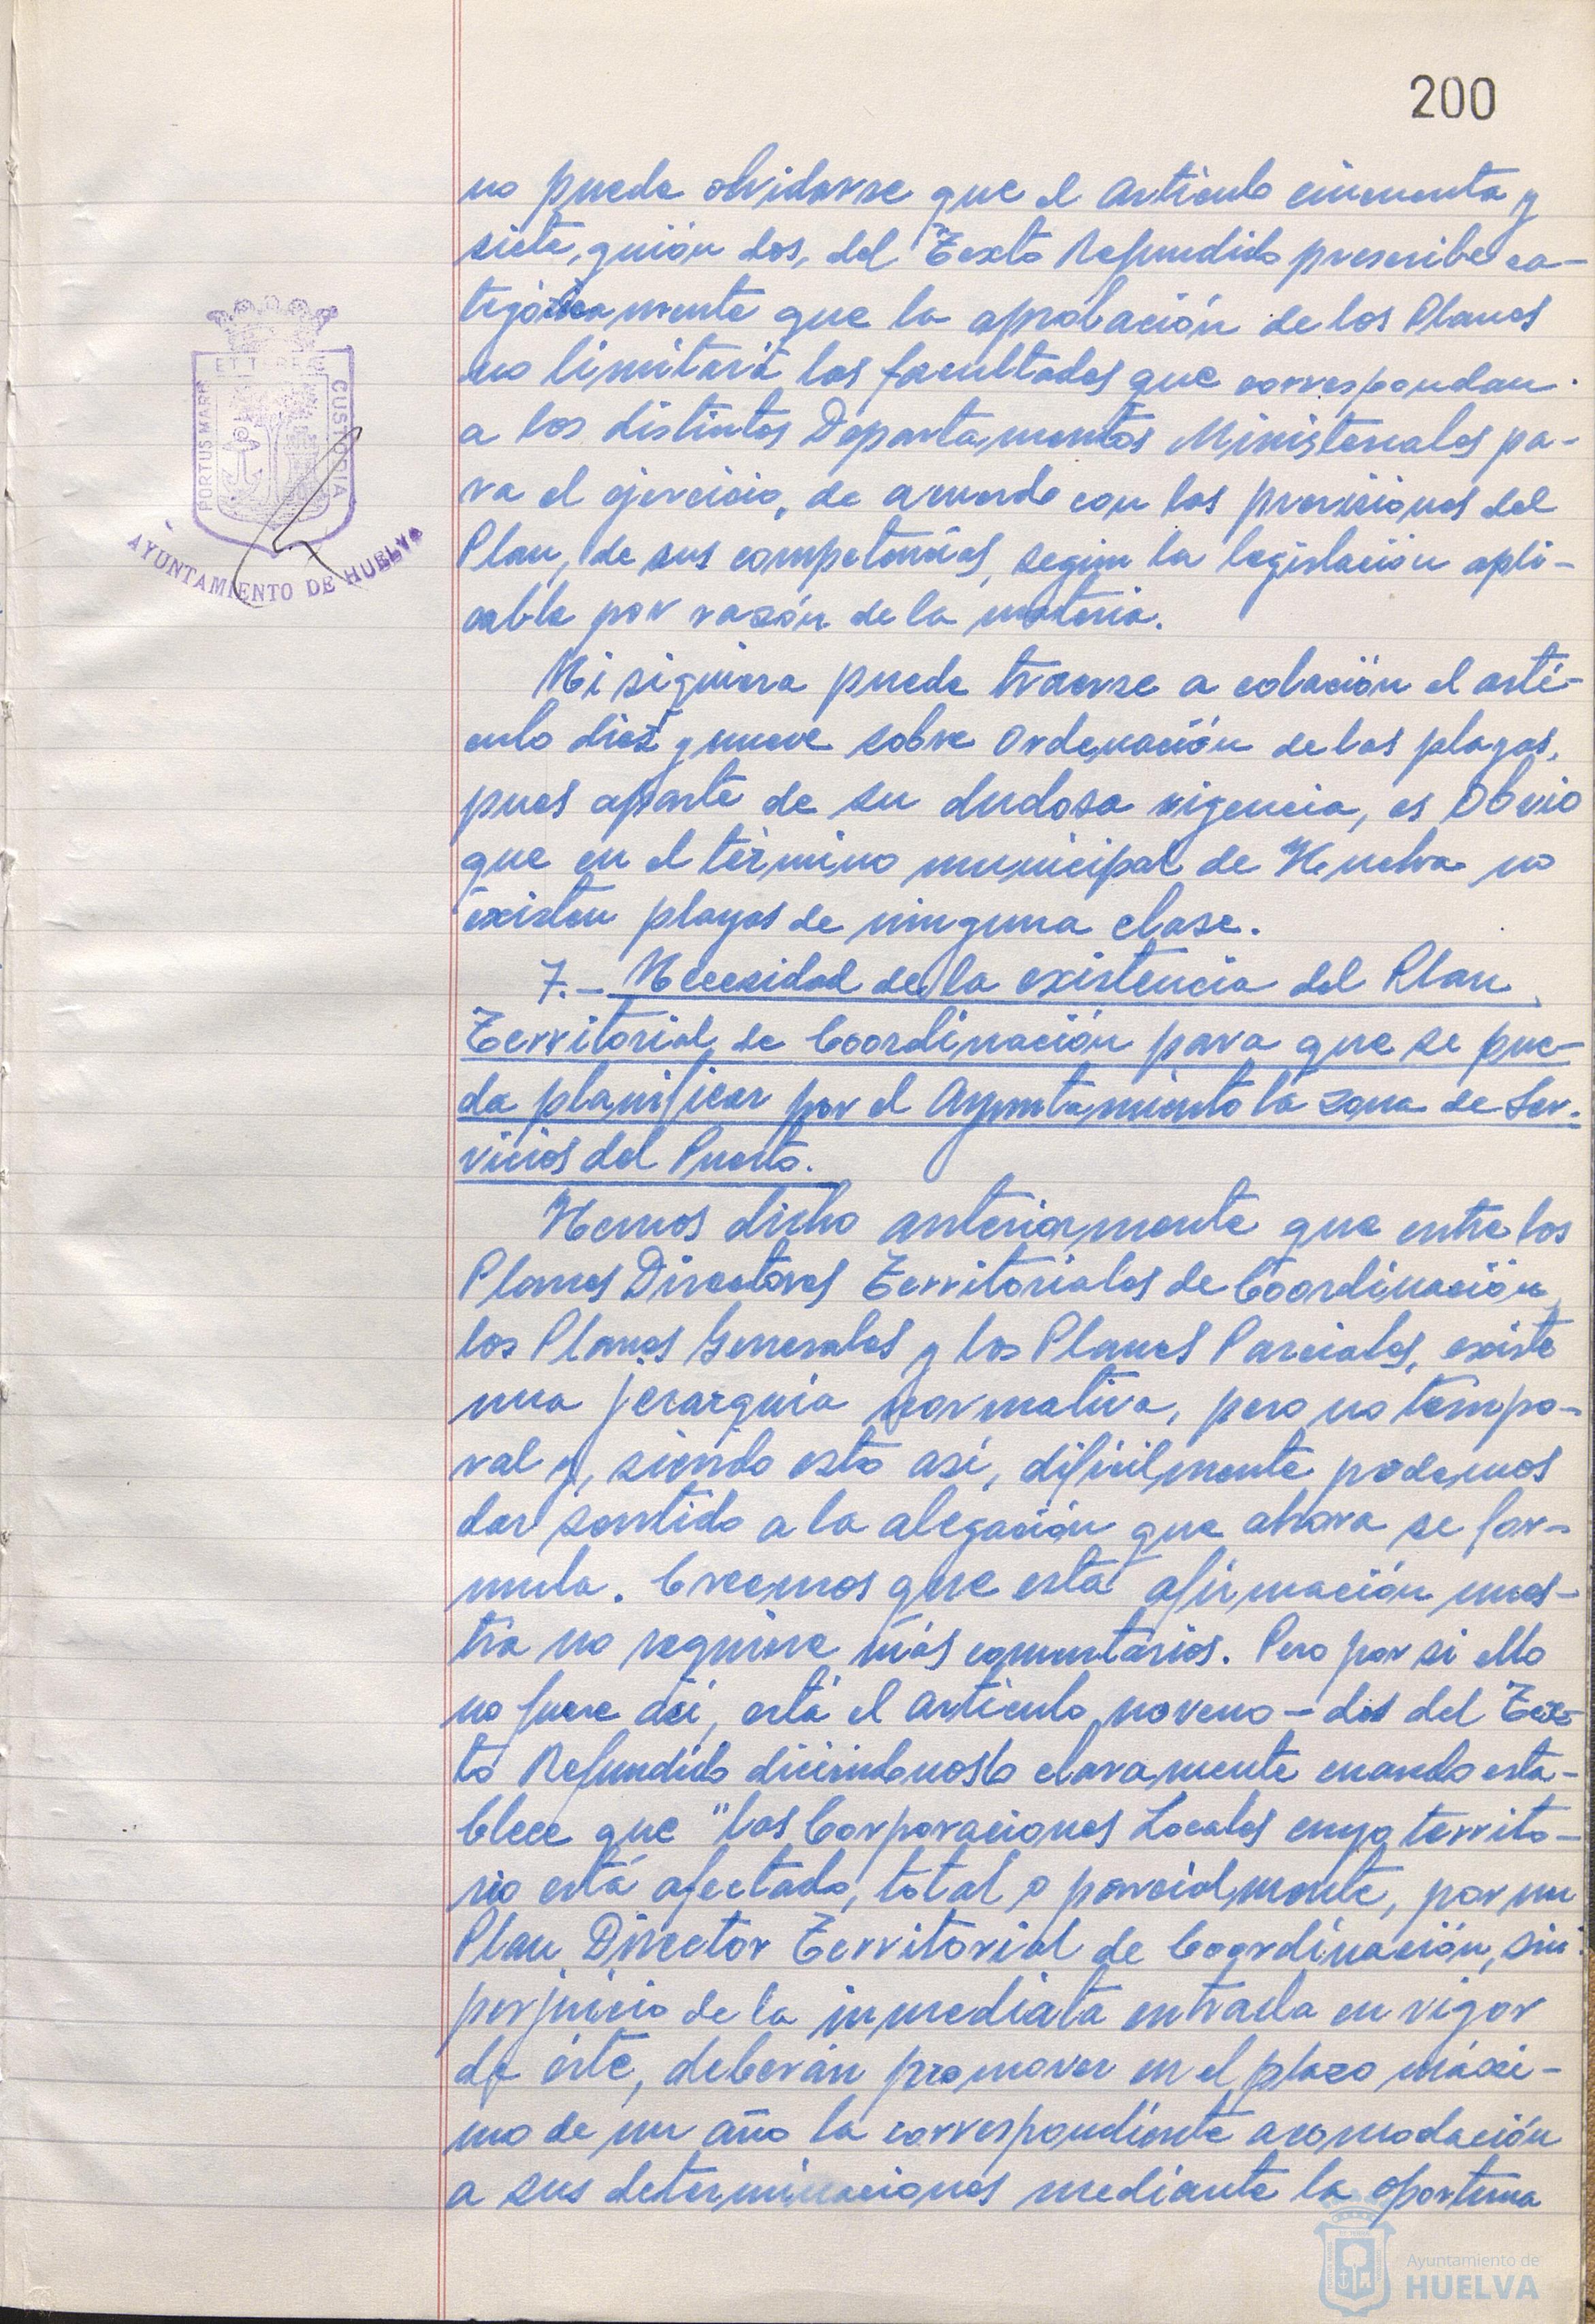 200
no puede olvidarse que el artículo cincuenta y
siete, guión dos, del Texto Refundido prescribe ca-
tegóricamente que la aprobación de los Planes
no limitará las facultades que correspondan
a los distintos Departamentos Ministeriales pa-
ra el ejercicio, de acuerdo con las previsiones del
Plan, de sus competencias, según la legislación apli-
cable por razón de la materia.
Ni siquiera puede traerse a colación el artí-
culo diez y nueve sobre Ordenación de las playas,
pues aparte de su dudosa vigencia, es Obvio
que en el término municipal de Huelva no
existen playas de ninguna clase.
7.- Necesidad de la existencia del Plan
Territorial de Coordinación para que se pue-
da planificar por el Ayuntamiento la zona de Ser-
vicios del Puerto.
Hemos dicho anteriormente que entre los
Planes Directores Territoriales de Coordinación,
los Planes Generales y los Planes Parciales, existe
una jerarquía normativa, pero no tempo-
ral y, siendo esto así, difícilmente podemos
dar sentido a la alegación que ahora se for-
mula. Creemos que esta afirmación nues-
tra no requiere más comentarios. Pero por si ello
no fuere así, está el artículo noveno - dos del Tex-
to Refundido diciéndonoslo claramente cuando esta-
blece que "las Corporaciones Locales cuyo territo-
rio está afectado, total o parcialmente, por un
Plan Director Territorial de Coordinación, sin
perjuicio de la inmediata entrada en vigor
de éste, deberán promover en el plazo máxi-
mo de un año la correspondiente acomodación
a sus determinaciones mediante la oportuna
PORTUS MARIS
CUSTODIA
AYUNTAMIENTO DE HUELVA
Ayuntamiento de
HUELVA